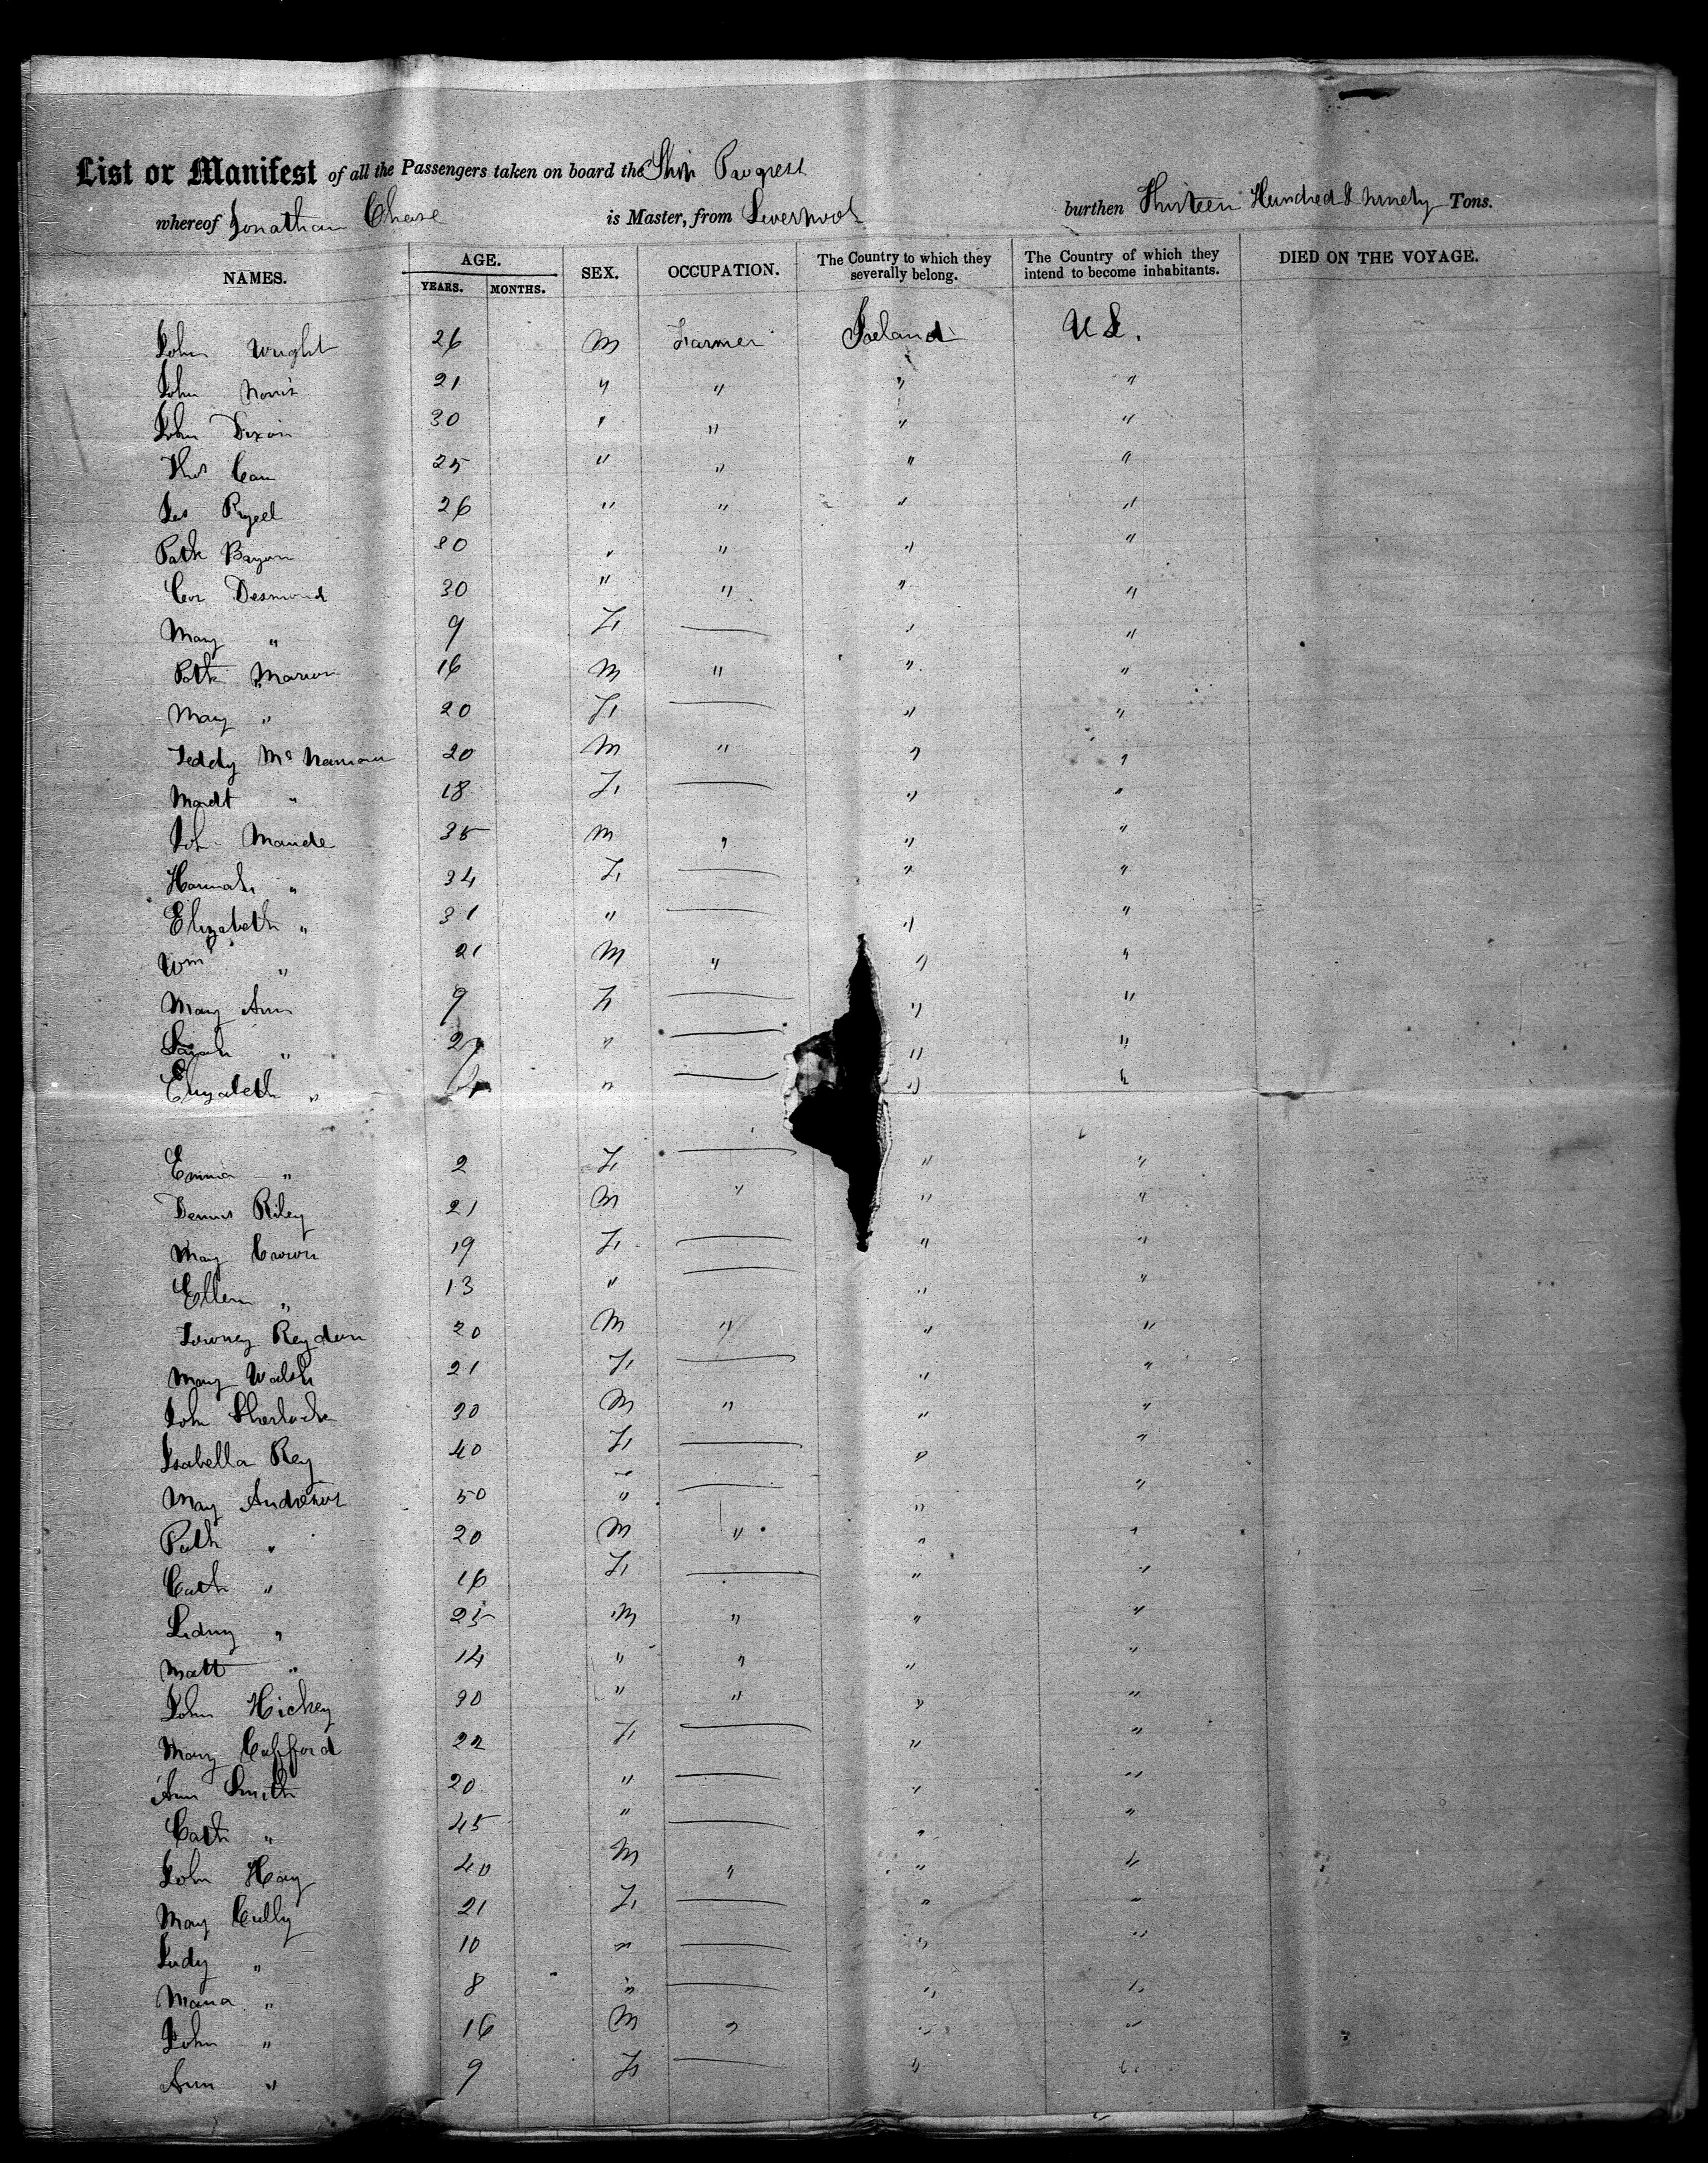 List or Manifest of all the Passengers taken on board the Ship Progress
whereof Jonathan Chase is Master, from Liverpool burthen Thirteen Hundred & ninety Tons.
NAMES. AGE. YEARS. MONTHS. SEX. OCCUPATION. The Country to which they severally belong. The Country of which they intend to become inhabitants. DIED ON THE VOYAGE.
John Wright 26 M Farmer Ireland U S.
John Norris 21 " " " "
John Dixon 30 " " " "
Thos 25 " " " "
26 " " " "
Patk 30 " " " "
Cor Desmond 30 " " " "
Mary " 9 F — " "
Patk Marion 16 M " " "
Mary " 20 F — " "
Teddy McNamara 20 M " " "
Mardt " 18 F — " "
Joh. Maude 35 M " " "
Hannah " 34 F — " "
Elizabeth " 31 " — " "
Wm " 21 M " " "
Mary Ann 9 F — " "
Sarah " " — " "
Elizabeth " " — " "
Emma " 2 F — " "
Dennis Riley 21 M " " "
Mary Crown 19 F — " "
Ellen " 13 " — " "
Reydan 20 M " " "
Mary Walsh 21 F — " "
John Sherlock 30 M " " "
Isabella Rey 40 F — " "
Mary Andrews 50 " — " "
Patk " 20 M " " "
Cath " 16 F — " "
Sidney " 25 M " " "
Matt " 14 " " " "
John Hickey 30 " " " "
Mary Cafford 22 F — " "
Ann Smith 20 " — " "
Cath " 45 " — " "
John Hay 40 M " " "
Mary Cully 21 F — " "
Judy " 10 " — " "
Maria " 8 " — " "
John " 16 M " " "
Ann " 9 F — " "